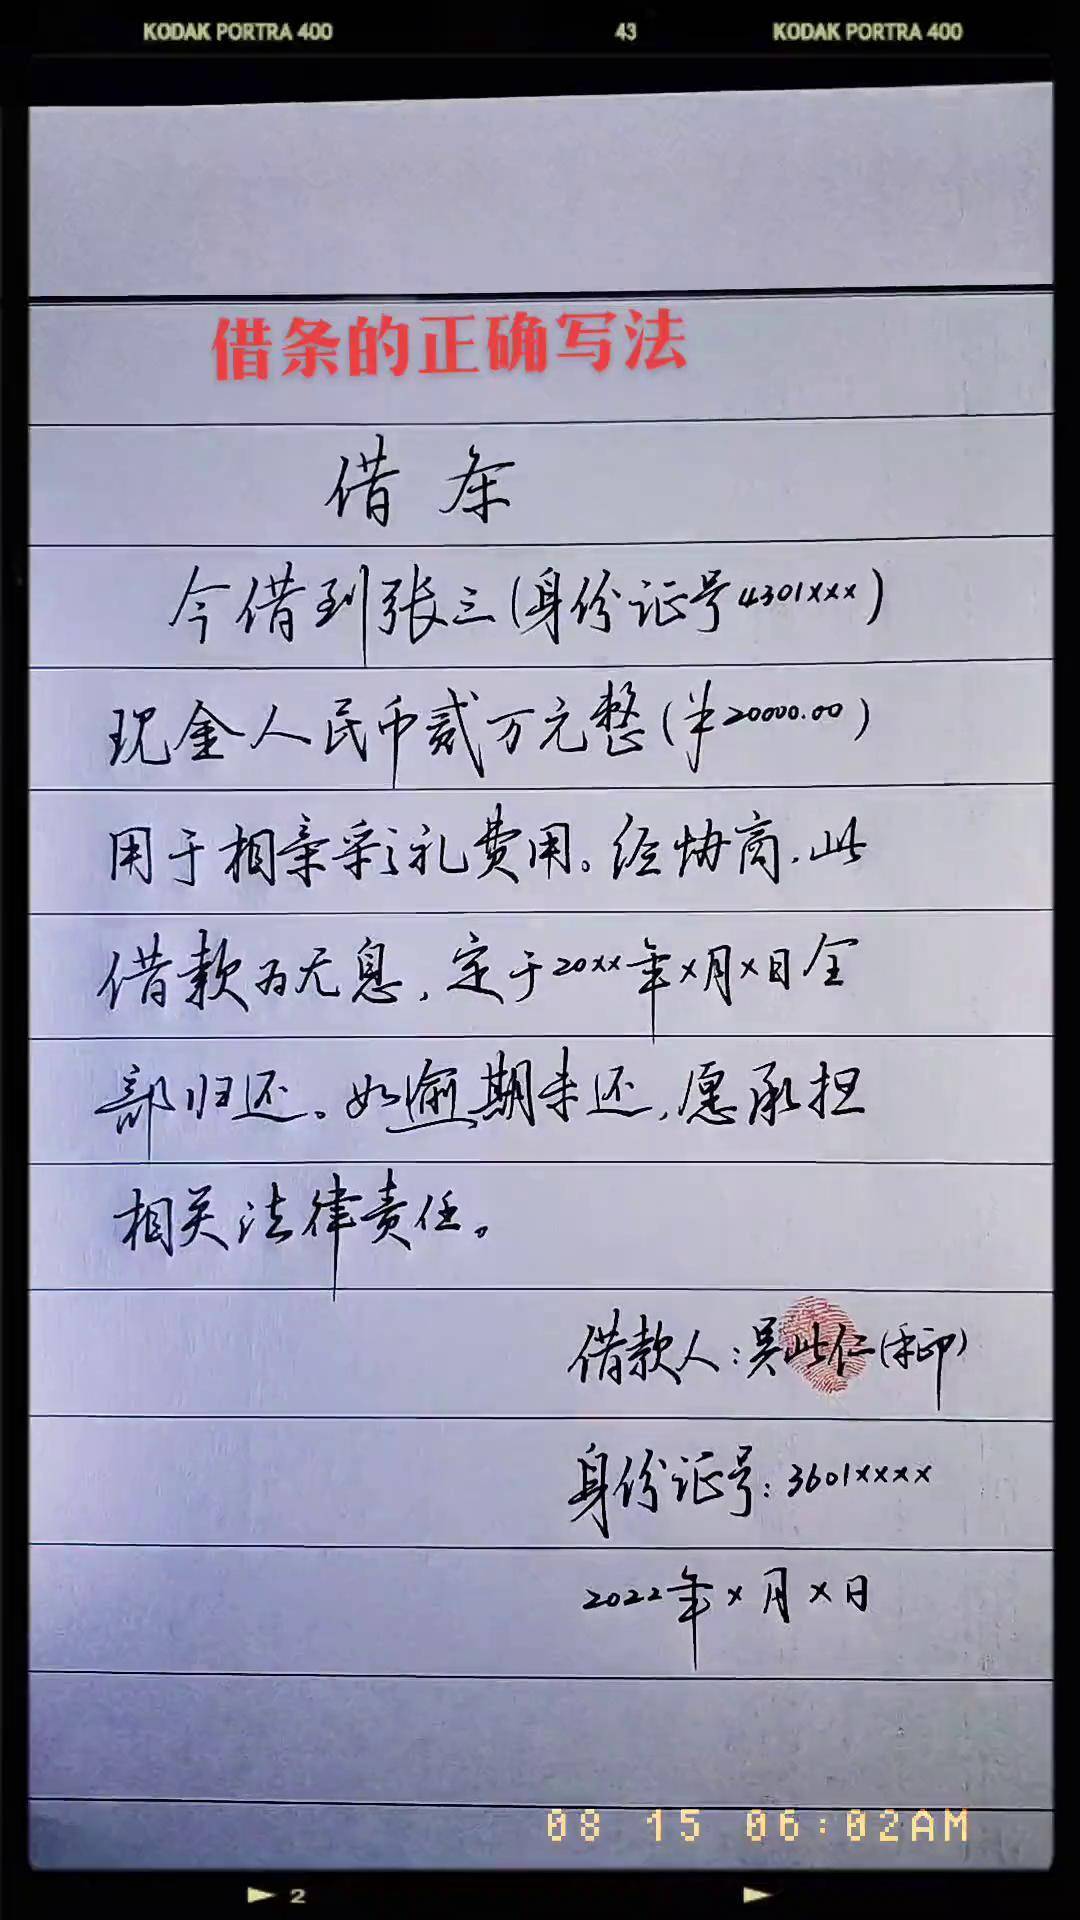 KODAK PORTRA 400 43 KODAK PORTRA 400
借条的正确写法
借条
今借到张三(身份证号4301xxx)
现金人民币贰万元整(¥20000.00)
用于相亲彩礼费用。经协商,此
借款为无息,定于20xx年x月x日全
部归还。如逾期未还,愿承担
相关法律责任。
借款人:吴此仁(手印)
身份证号:3601xxxx
2022年x月x日
08 15 06:02AM
2